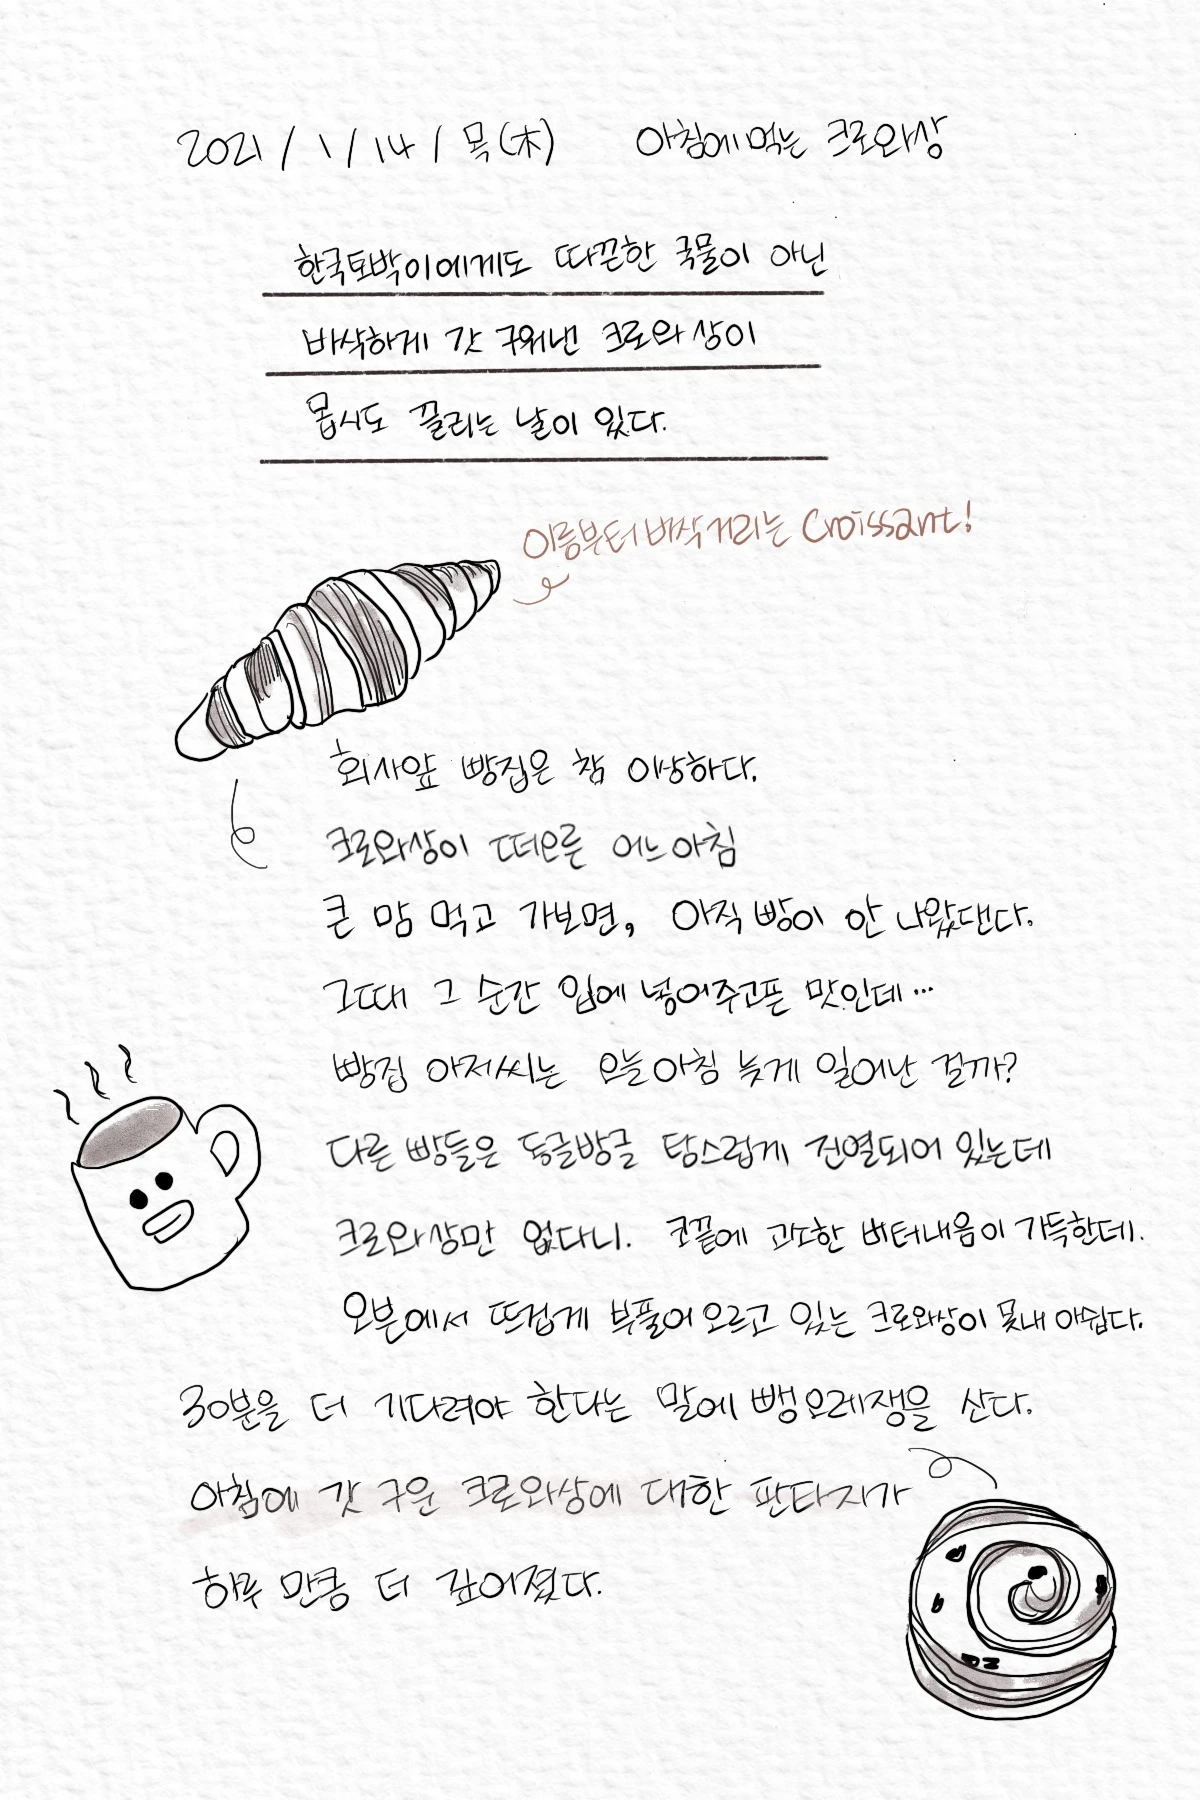 2021/1/14/목(木) 아침에 먹는 크로와상
한국토박이에게도 따끈한 국물이 아닌
바삭하게 갓 구워낸 크로와상이
몹시도 끌리는 날이 있다.
이름부터 바삭거리는 Croissant!
회사앞 빵집은 참 이상하다.
크로와상이 떠오른 어느아침
큰 맘 먹고 가보면, 아직 빵이 안 나왔댄다.
그때 그 순간 입에 넣어주고픈 맛인데…
빵집 아저씨는 오늘아침 늦게 일어난 걸까?
다른 빵들은 동글방글 탐스럽게 진열되어 있는데
크로와상만 없다니. 코끝에 고소한 버터내음이 가득한데.
오븐에서 뜨겁게 부풀어 오르고 있는 크로와상이 못내 아쉽다.
30분을 더 기다려야 한다는 말에 뺑오레쟁을 산다.
아침에 갓 구운 크로와상에 대한 판타지가
하루 만큼 더 깊어졌다.